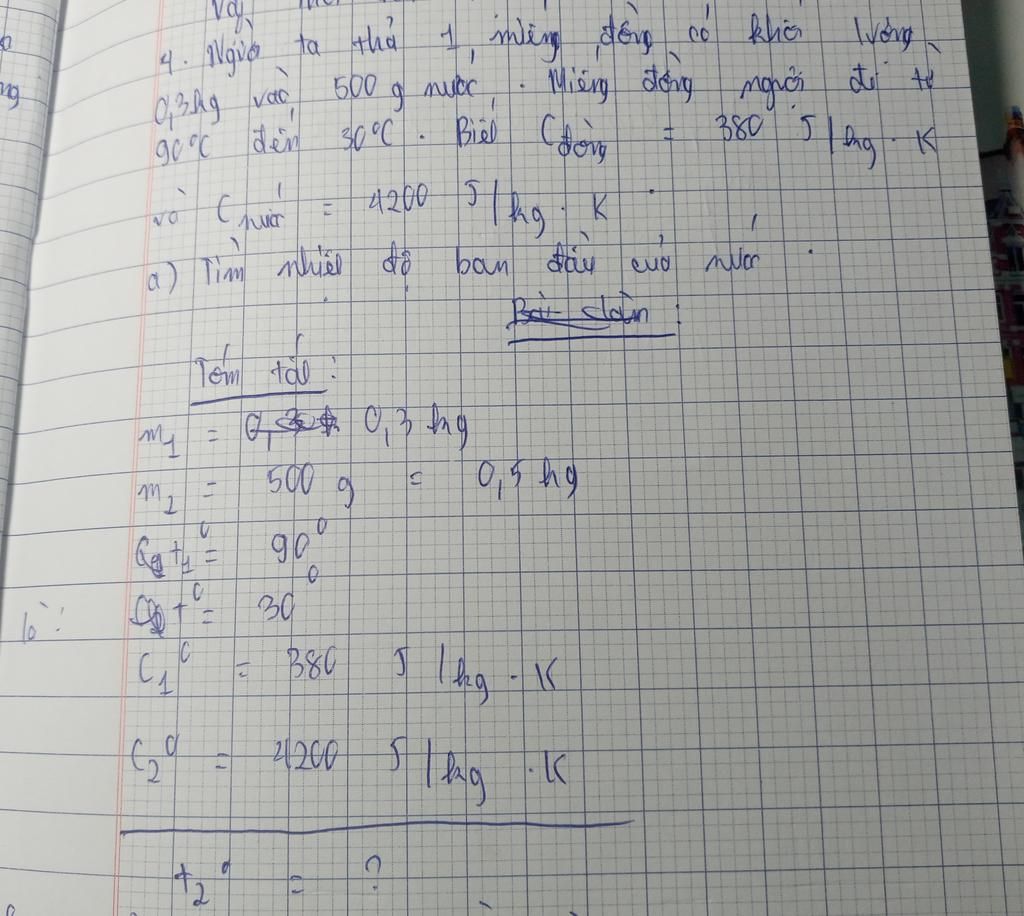 Vậy
4. Người ta thả 1 miếng đồng có khối lượng
0,3kg vào 500 g nước. Miếng đồng nguội đi từ
90°C đến 30°C. Biết Cđồng = 380 J/kg.K
và Cnước = 4200 J/kg.K
a) Tìm nhiệt độ ban đầu của nước.
Tóm tắt:
m₁ = 0,3 kg
m₂ = 500 g = 0,5 kg
t₁° = 90°
t° = 30°
C₁° = 380 J/kg.K
C₂° = 4200 J/kg.K
t₂° = ?